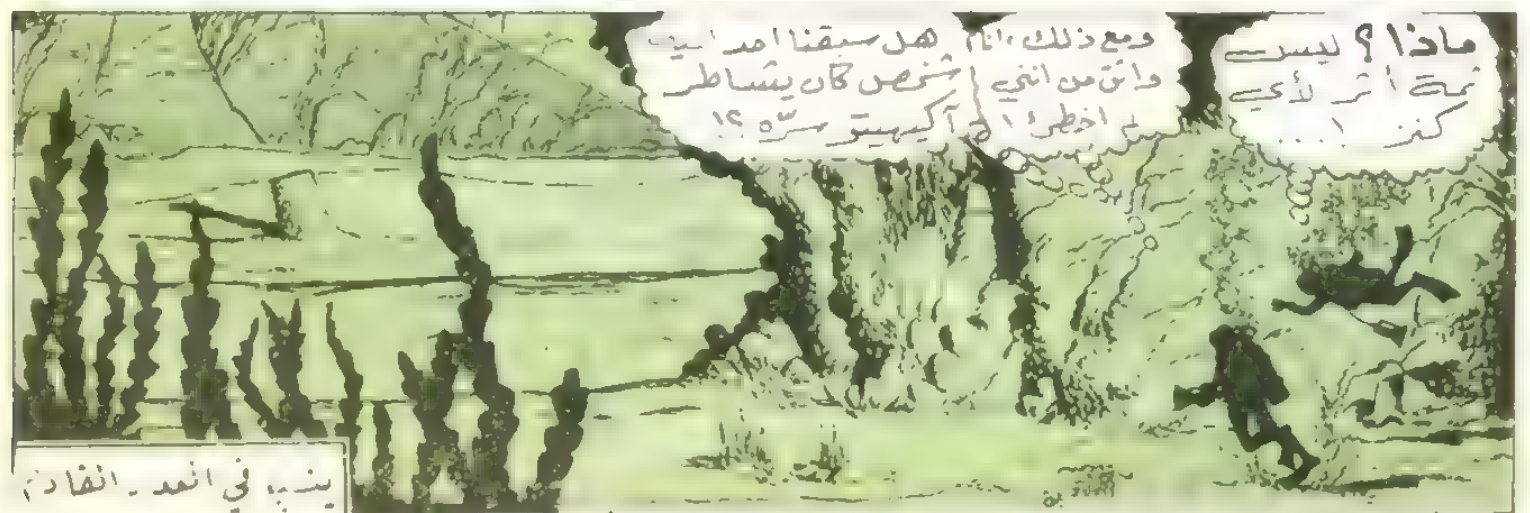 ماذا ؟ ليست
ثمة أثر لأي
كنز ! ...
ومع ذلك، انا
واثق من انني
لم اخطئ !
هل سبقنا احد
شخص كان يشاطر
آكيهيتو سرّه ؟!
يتبع في العدد القادم